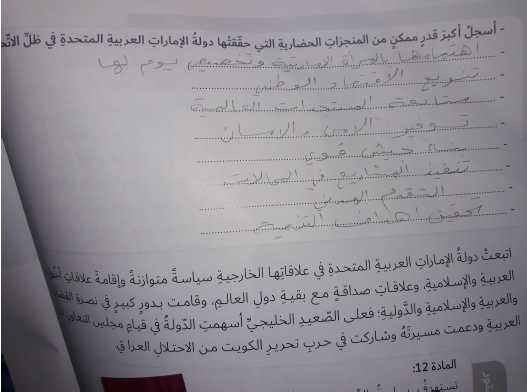 - أسجلُ أكبرَ قدرٍ ممكنٍ من المنجزاتِ الحضاريةِ التي حقّقتْها دولةُ الإماراتِ العربيةِ المتحدةِ في ظلِّ
- اهتمامها بالمرأة الإماراتية وتخصيص يوم لها
- تنويع الاقتصاد الوطني
- متابعة المستجدات العالمية
- توفير الامن والامان
- بناء جيش قوي
- تنفيذ المشاريع في المجالات
- التقدم
- تحقيق اهداف التنمية
اتبعتْ دولةُ الإماراتِ العربيةِ المتحدةِ في علاقاتِها الخارجيةِ سياسةً متوازنةً وإقامةَ علاقاتٍ
العربيةِ والإسلاميةِ، وعلاقاتِ صداقةٍ مع بقيةِ دولِ العالمِ، وقامت بدورٍ كبيرٍ في نصرةِ
والعربيةِ والإسلاميةِ والدَّوليةِ؛ فعلى الصَّعيدِ الخليجيِّ أسهمتِ الدّولةُ في قيامِ مجلسِ التعاونِ
العربيةِ ودعمت مسيرتَهُ وشاركت في حربِ تحريرِ الكويت من الاحتلالِ العراقي.
المادة 12:
تستهدفُ